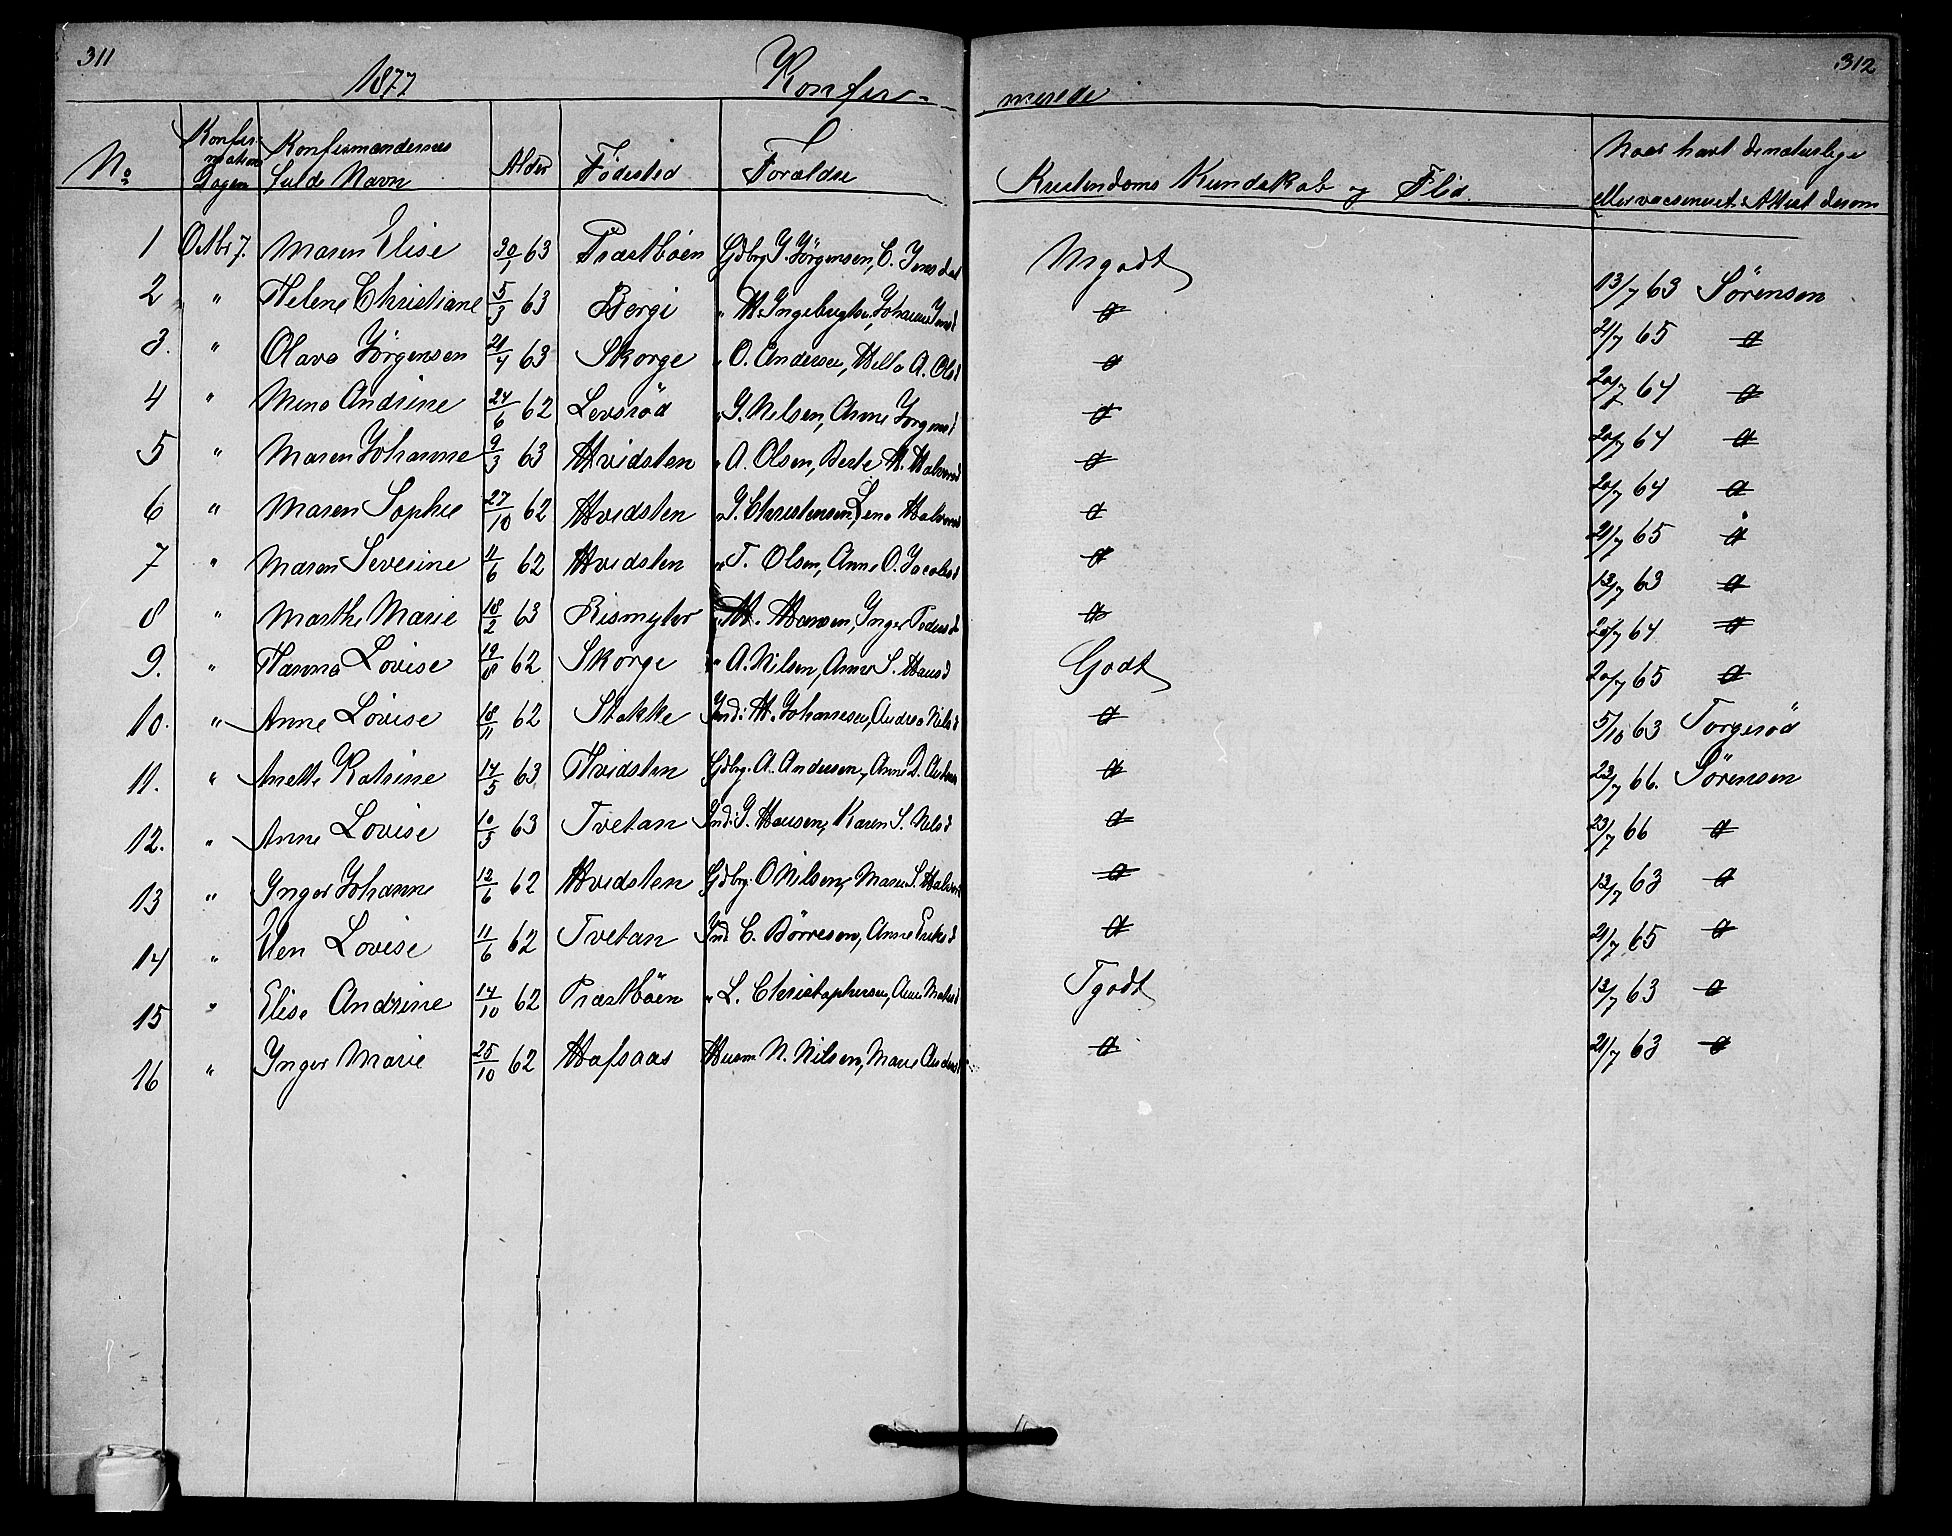 311
1877 Konfir-
merede 312
No Konfir-mations Dagen Konfirmandernes fulde Navn Alder Fødested Forældre Kristendoms Kundskab og Flid. Naar havt de naturlige eller vaccineret. Attest derom
1 Octbr 7. Maren Elise 30/1 63 Præstbøen Gdbrg J. Jörgensen, C. Jensdat Mgodt 13/7 63 Sörensen
2 " Helene Christiane 5/3 63 Bergi " H. Ingebrigtsen, Johanne Jensd d 21/7 65 d
3. " Olava Jörgensen 21/4 63 Skorge " O. Andersen, A. Olsd d 20/7 64 d
4 " Mina Andrine 24/6 62 Levsröd " J. Nilsen, Anne Jörgensd d 20/7 64 d
5 " Maren Johanne 9/3 63 Hvidsten " A. Olsen, Berte H. Halvorsd d 20/7 64 d
6 " Maren Sophie 27/10 62 Hvidsten " J. Christensen, Lena Halvorsd d 21/7 65 d
7 " Maren Severine 11/6 62 Hvidsten " T. Olsen, Anne O. Jacobsd d 13/7 63 d
8 " Marthe Marie 18/2 63 Rismyhr " H. Hansen, Inger Pedersd d 20/7 64 d
9. " Hanna Lovise 19/8 62 Skorge " A. Nilsen, Anne S. Hansd Godt 20/7 65 d
10. " Anne Lovise 18/11 62 Stokke Ind: H. Johannesen, Andrea Nilsd d 5/10 63 Torgersöd
11. " Anette Katrine 14/5 63 Hvidsten Gdbrg. A. Andersen, Anne d 23/7 66. Sörensen
12. " Anne Lovise 10/5 63 Tvetan Ind: J. Hansen, Karen S. Nilsd d 23/7 66 d
13 " Inger Johanne 12/6 62 Hvidsten Gdbrg. O Nilsen, Maren S. Halvorsd d 13/7 63 d
14 " Elen Lovise 11/6 62 Tvetan Ind C. Börresen, Anne Eriksd d 21/7 65 d
15 " Elise Andrine 14/10 62 Præstbøen " L. Christophersen, Anne Tgodt 13/7 63 d
16 " Inger Marie 25/10 62 Hafsaas Husm N. Nilsen, Maren Andersd d 21/7 63 d